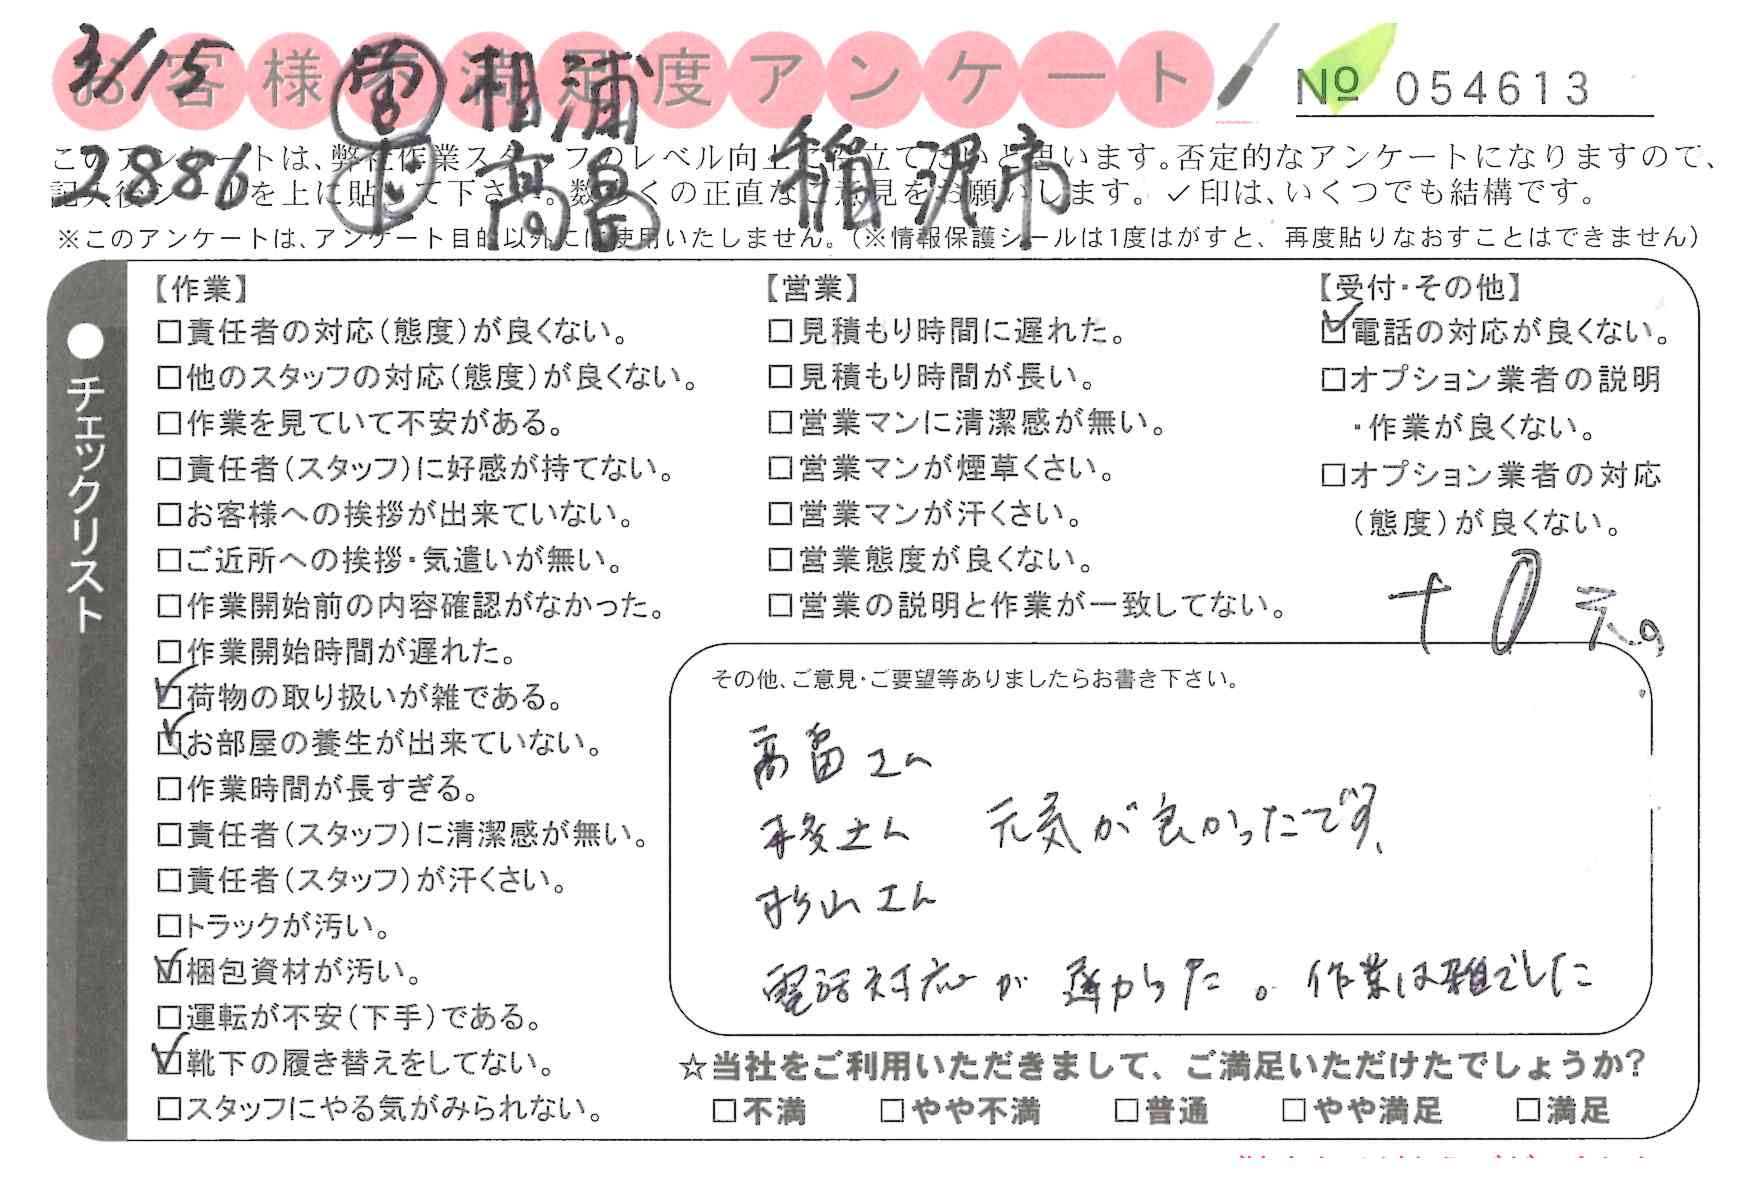 お客様不満足度アンケート
3/15 営 相浦
№ 054613
2886 高畠 稲沢市
このアンケートは、弊社作業スタッフのレベル向上に役立てたいと思います。否定的なアンケートになりますので、
記入後シールを上に貼って下さい。数多くの正直なご意見をお願いします。✓印は、いくつでも結構です。
※このアンケートは、アンケート目的以外には使用いたしません。(※情報保護シールは1度はがすと、再度貼りなおすことはできません)
●チェックリスト
【作業】
□責任者の対応(態度)が良くない。
□他のスタッフの対応(態度)が良くない。
□作業を見ていて不安がある。
□責任者(スタッフ)に好感が持てない。
□お客様への挨拶が出来ていない。
□ご近所への挨拶・気遣いが無い。
□作業開始前の内容確認がなかった。
□作業開始時間が遅れた。
☑荷物の取り扱いが雑である。
☑お部屋の養生が出来ていない。
□作業時間が長すぎる。
□責任者(スタッフ)に清潔感が無い。
□責任者(スタッフ)が汗くさい。
□トラックが汚い。
☑梱包資材が汚い。
□運転が不安(下手)である。
☑靴下の履き替えをしてない。
□スタッフにやる気がみられない。
【営業】
□見積もり時間に遅れた。
□見積もり時間が長い。
□営業マンに清潔感が無い。
□営業マンが煙草くさい。
□営業マンが汗くさい。
□営業態度が良くない。
□営業の説明と作業が一致してない。
【受付・その他】
☑電話の対応が良くない。
□オプション業者の説明
・作業が良くない。
□オプション業者の対応
(態度)が良くない。
その他、ご意見・ご要望等ありましたらお書き下さい。
高畠さん
さん 元気が良かったです、
杉山さん
電話対応が 遅かった。作業は雑でした
☆当社をご利用いただきまして、ご満足いただけたでしょうか?
□不満 □やや不満 □普通 □やや満足 □満足